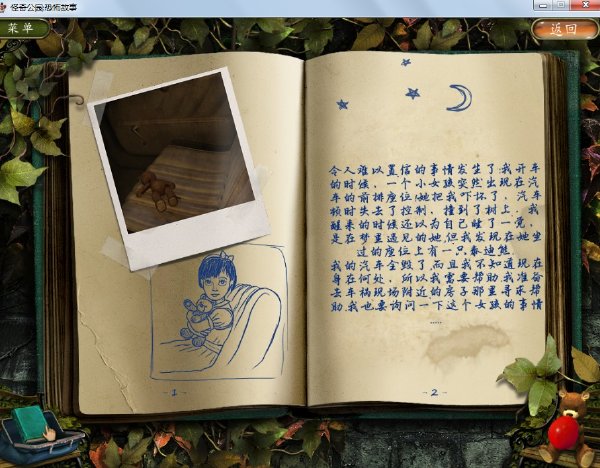 怪奇公园:恐怖故事
菜单
返回
令人难以置信的事情发生了.我开车
的时候，一个小女孩突然出现在汽
车的前排座位!她把我吓坏了，汽车
顿时失去了控制，撞到了树上. 我
醒来的时候还以为自己睡了一觉，
是在梦里遇见的她,但我发现在她坐
过的座位上有一只泰迪熊.
我的汽车全毁了,而且我不知道现在
身在何处，所以我需要帮助.我准备
去车祸现场附近的房子那里寻求帮
助.我也要询问一下这个女孩的事情
......
- 1 -
- 2 -